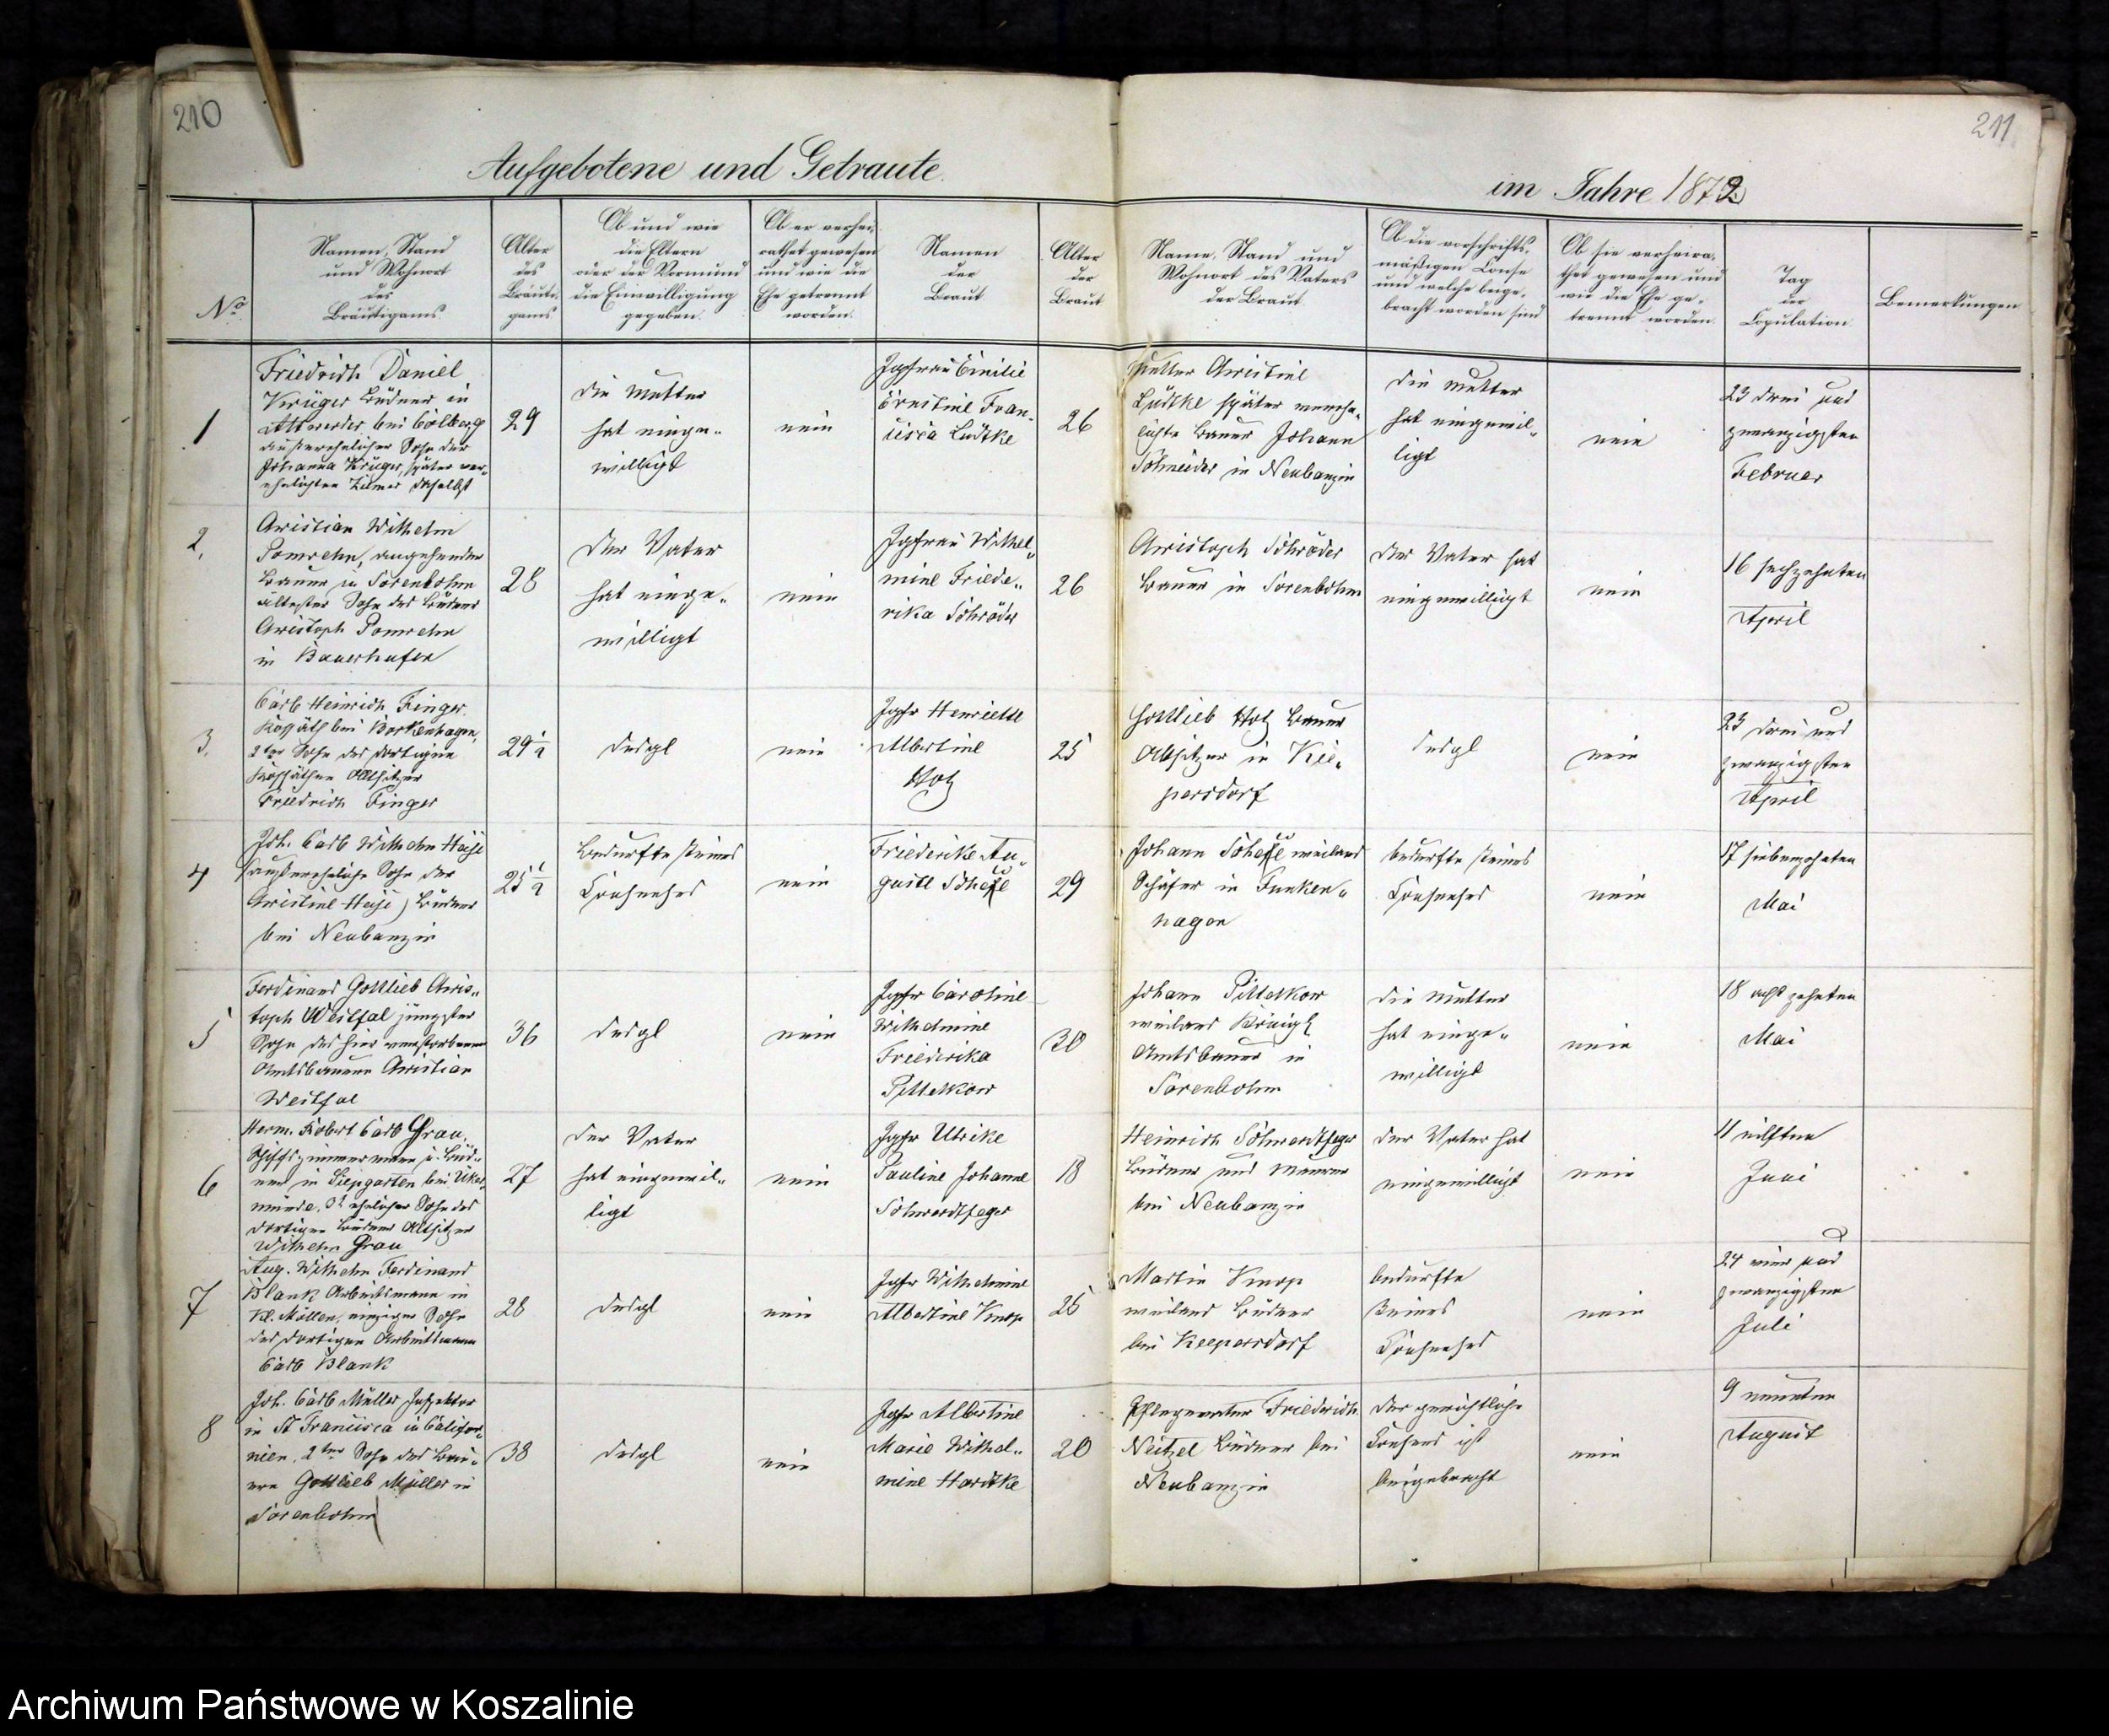 210
211
Aufgebotene und Getraute
im Jahre 1872
No.
Namen, Stand
und Wohnort
des
Bräutigams.
Alter
des
Bräuti-
gams
Ob und wie
die Eltern
oder der Vormund
die Einwilligung
gegeben.
Ob er verhei-
rathet gewesen
und wie die
Ehe getrennt
worden.
Namen
der
Braut
Alter
der
Braut
Name, Stand und
Wohnort des Vaters
der Braut.
Ob die vorschrifts-
mäßigen Conse
und welche beige-
bracht worden sind
Ob sie verheira-
thet gewesen und
wie die Ehe ge-
trennt worden.
Tag
der
Copulation.
Bemerkungen
1
Friedrich Daniel
Krüger Büdner in
Altwerder bei Colberg
außerehelicher Sohn der
Johanna Krüger, später ver-
ehelichten daselbst
29
die Mutter
hat einge-
willigt
nein
Jgfrau Emilie
Ernstine Fran-
cisca Lüdtke
26
Mutter Christine
Lüdtke später vereh-
lichte Bauer Johann
Schneider in Neubanzin
die Mutter
hat eingewil-
ligt
nein
23 drei und
zwanzigsten
Februar
2.
Christian Wilhelm
Pomrehn, angehender
Bauer in Sorenbohm
ältester Sohn des Büdners
Christoph Pomrehn
in Bauerhufen
28
Der Vater
hat einge-
willigt
nein
Jgfrau Wilhel-
mine Friede-
rika Schröder
26
Christoph Schröder
Bauer in Sorenbohm
der Vater hat
eingewilligt
nein
16 sechzehnten
April
3.
Carl Heinrich Finger
Kossäth bei Borkenhagen,
2ter Sohn des dortigen
Kossäthen Altsitzer
Friedrich Finger
29 1/2
desgl
nein
Jgfr Henriette
Albertine
Hotz
25
Gottlieb Hotz Bauer
Altsitzer in Kie-
persdorf
desgl
nein
23 drei und
zwanzigsten
April
4
Joh. Carl Wilhelm Heise
(außereheliche Sohn der
Christine Heise) Büdner
bei Neubanzin
25 1/2
Bedurfte keines
Consenses
nein
Friederike Au-
guste
29
Johann weiland
Schäfer in Funken-
hagen
bedurfte keines
Consenses
nein
17 siebenzehnten
Mai
5
Ferdinand Gottlieb Chris-
toph Westfal jüngster
Sohn des hier verstorbenen
Amtsbauern Christian
Westfal
36
desgl
nein
Jgfr Caroline
Wilhelmine
Friederika
Pittelkow
30
Johann Pittelkow
weiland Königl
Amtsbauer in
Sorenbohm
die Mutter
hat einge-
willigt
nein
18 achtzehnten
Mai
6
Herm. Robert Carl Grau,
Schiffszimmermann u Büd-
ner in Liepgarten bei Üker-
münde, ehelicher Sohn des
dortigen Büdner Altsitzer
Wilhelm Grau
27
der Vater
hat eingewil-
ligt
nein
Jgfr Ulrike
Pauline Johanne
Schwerdtfeger
18
Heinrich Schwerdtfeger
Büdner und Maurer
bei Neubanzin
der Vater hat
eingewilligt
nein
11 eilften
Juni
7
Aug. Wilhelm Ferdinand
Blank Arbeitsmann in
Kl. Möllen, einziger Sohn
des dortigen Arbeitsmann
Carl Blank
28
desgl
nein
Jgfr Wilhelmine
Albertine Knop
25
Martin Knop
weiland Büdner
bei Kiepersdorf
bedurfte
keines
Consenses
nein
24 vier und
zwanzigsten
Juli
8
Joh. Carl Müller Inspektor
in St Francisca in Califor-
nien, 2ter Sohn des Bau-
ern Gottlieb Müller in
Sorenbohm
38
desgl
nein
Jgfr Albertine
Marie Wilhel-
mine Hardtke
20
Pflegevater Friederich
Neitzel Büdner bei
Neubanzin
der gerichtliche
Consens ist
beigebracht
nein
9 neunten
August
Archiwum Państwowe w Koszalinie